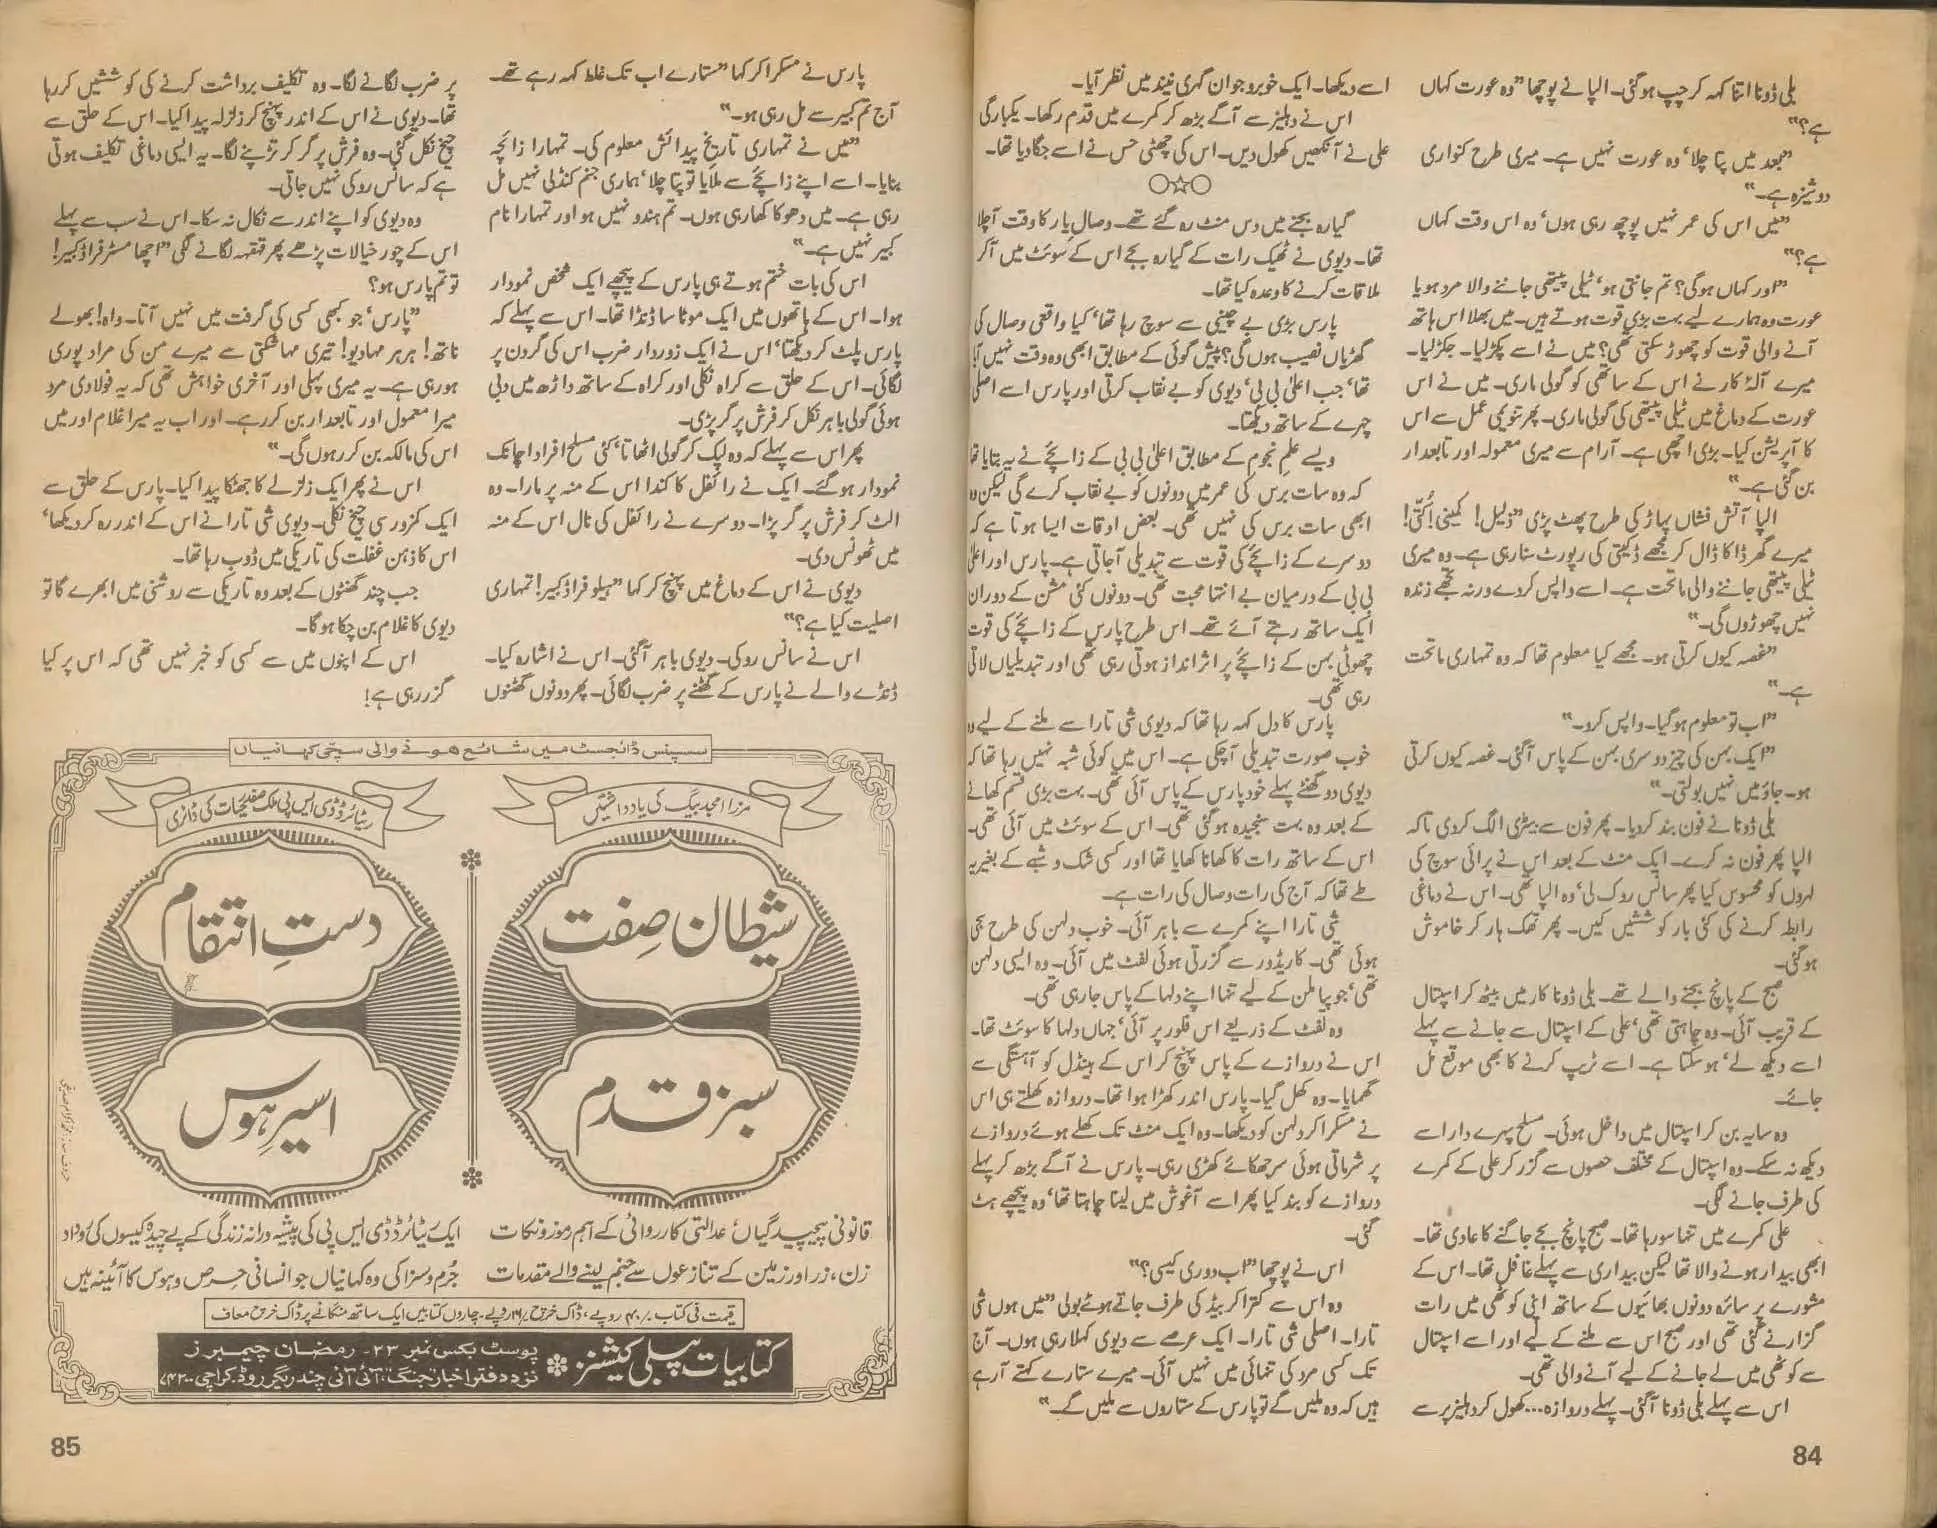 بلی ڈونا اتنا کہہ کر چپ ہوگئی۔ الپا نے پوچھا "وہ عورت کہاں
ہے؟"
"بعد میں پتا چلا' وہ عورت نہیں ہے۔ میری طرح کنواری
دوشیزہ ہے۔"
"میں اس کی عمر نہیں پوچھ رہی ہوں' وہ اس وقت کہاں
ہے؟"
"اور کہاں ہوگی؟ تم جانتی ہو' ٹیلی پیتھی جاننے والا مرد ہو یا
عورت وہ ہمارے لیے بہت بڑی قوت ہوتے ہیں۔ میں بھلا اس ہاتھ
آنے والی قوت کو چھوڑ سکتی تھی؟ میں نے اسے پکڑلیا۔ جکڑلیا۔
میرے آلۂ کار نے اس کے ساتھی کو گولی ماری۔ میں نے اس
عورت کے دماغ میں ٹیلی پیتھی کی گولی ماری۔ پھر تنویمی عمل سے اس
کا آپریشن کیا۔ بڑی اچھی ہے۔ آرام سے میری معمولہ اور تابعدار
بن گئی ہے۔"
الپا آتش فشاں پہاڑ کی طرح پھٹ پڑی "ذلیل! کمینی! کتی!
میرے گھر ڈاکا ڈال کر مجھے ڈکیتی کی رپورٹ سنا رہی ہے۔ وہ میری
ٹیلی پیتھی جاننے والی ماتحت ہے۔ اسے واپس کردے ورنہ تجھے زندہ
نہیں چھوڑوں گی۔"
"غصہ کیوں کرتی ہو۔ مجھے کیا معلوم تھا کہ وہ تمہاری ماتحت
ہے۔"
"اب تو معلوم ہوگیا۔ واپس کرو۔"
"ایک بہن کی چیز دوسری بہن کے پاس آگئی۔ غصہ کیوں کرتی
ہو۔ جاؤ میں نہیں بولتی۔"
بلی ڈونا نے فون بند کردیا۔ پھر فون سے بیٹری الگ کردی تاکہ
الپا پھر فون نہ کرے۔ ایک منٹ کے بعد اس نے پرائی سوچ کی
لہروں کو محسوس کیا پھر سانس روک لی' وہ الپا تھی۔ اس نے دماغی
رابطہ کرنے کی کئی بار کوششیں کیں۔ پھر تھک ہار کر خاموش
ہوگئی۔
صبح کے پانچ بجنے والے تھے۔ بلی ڈونا کار میں بیٹھ کر اسپتال
کے قریب آئی۔ وہ چاہتی تھی' علی کے اسپتال سے جانے سے پہلے
اسے دیکھ لے' ہوسکتا ہے۔ اسے ٹریپ کرنے کا بھی موقع مل
جائے۔
وہ سایہ بن کر اسپتال میں داخل ہوئی۔ مسلح پہرے دار اسے
دیکھ نہ سکے۔ وہ اسپتال کے مختلف حصوں سے گزر کر علی کے کمرے
کی طرف جانے لگی۔
علی کمرے میں تنہا سو رہا تھا۔ صبح پانچ بجے جاگنے کا عادی تھا۔
ابھی بیدار ہونے والا تھا لیکن بیداری سے پہلے غافل تھا۔ اس کے
مشورے پر سائرہ دونوں بھائیوں کے ساتھ اپنی کوٹھی میں رات
گزارنے گئی تھی اور صبح اس سے ملنے کے لیے اور اسے اسپتال
سے کوٹھی میں لے جانے کے لیے آنے والی تھی۔
اس سے پہلے بلی ڈونا آگئی۔ پہلے دروازہ... کھول کر دہلیز پر سے
اسے دیکھا۔ ایک خوبرو جوان گہری نیند میں نظر آیا۔
اس نے دہلیز سے آگے بڑھ کر کمرے میں قدم رکھا۔ یکبارگی
علی نے آنکھیں کھول دیں۔ اس کی چھٹی حس نے اسے جگا دیا تھا۔
○☆○
گیارہ بجنے میں دس منٹ رہ گئے تھے۔ وصالِ یار کا وقت آچلا
تھا۔ دیوی نے ٹھیک رات کے گیارہ بجے اس کے سوئٹ میں آکر
ملاقات کرنے کا وعدہ کیا تھا۔
پارس بڑی بے چینی سے سوچ رہا تھا' کیا واقعی وصال کی
گھڑیاں نصیب ہوں گی؟ پیش گوئی کے مطابق ابھی وہ وقت نہیں آیا
تھا' جب اعلیٰ بی بی' دیوی کو بے نقاب کرتی اور پارس اسے اصلی
چہرے کے ساتھ دیکھتا۔
ویسے علم نجوم کے مطابق اعلیٰ بی بی کے زائچے نے یہ بتایا تھا
کہ وہ سات برس کی عمر میں دونوں کو بے نقاب کرے گی لیکن وہ
ابھی سات برس کی نہیں تھی۔ بعض اوقات ایسا ہوتا ہے کہ
دوسرے کے زائچے کی قوت سے تبدیلی آجاتی ہے۔ پارس اور اعلیٰ
بی بی کے درمیان بے انتہا محبت تھی۔ دونوں کئی مشن کے دوران
ایک ساتھ رہتے آئے تھے۔ اس طرح پارس کے زائچے کی قوت
چھوٹی بہن کے زائچے پر اثر انداز ہوتی رہی تھی اور تبدیلیاں لاتی
رہی تھی۔
پارس کا دل کہہ رہا تھا کہ دیوی شی تارا سے ملنے کے لیے وہ
خوب صورت تبدیلی آچکی ہے۔ اس میں کوئی شبہ نہیں رہا تھا کہ
دیوی دو گھنٹے پہلے خود پارس کے پاس آئی تھی۔ بہت بڑی قسم کھانے
کے بعد وہ بہت سنجیدہ ہوگئی تھی۔ اس کے سوئٹ میں آئی تھی۔
اس کے ساتھ رات کا کھانا کھایا تھا اور کسی شک و شبے کے بغیر یہ
طے تھا کہ آج کی رات وصال کی رات ہے۔
شی تارا اپنے کمرے سے باہر آئی۔ خوب دلہن کی طرح سجی
ہوئی تھی۔ کاریڈور سے گزرتی ہوئی لفٹ میں آئی۔ وہ ایسی دلہن
تھی' جو پیا ملن کے لیے تنہا اپنے دلہا کے پاس جارہی تھی۔
وہ لفٹ کے ذریعے اس فلور پر آئی' جہاں دلہا کا سوئٹ تھا۔
اس نے دروازے کے پاس پہنچ کر اس کے ہینڈل کو آہستگی سے
گھمایا۔ وہ کھل گیا۔ پارس اندر کھڑا ہوا تھا۔ دروازہ کھلتے ہی اس
نے مسکرا کر دلہن کو دیکھا۔ وہ ایک منٹ تک کھلے ہوئے دروازے
پر شرماتی ہوئی سر جھکائے کھڑی رہی۔ پارس نے آگے بڑھ کر پہلے
دروازے کو بند کیا پھر اسے آغوش میں لینا چاہتا تھا' وہ پیچھے ہٹ
گئی۔
اس نے پوچھا "اب دوری کیسی؟"
وہ اس سے کترا کر بیڈ کی طرف جاتے ہوئے بولی "میں ہوں شی
تارا۔ اصلی شی تارا۔ ایک عرصے سے دیوی کہلا رہی ہوں۔ آج
تک کسی مرد کی تنہائی میں نہیں آئی۔ میرے ستارے کہتے آرہے
ہیں کہ وہ ملیں گے تو پارس کے ستاروں سے ملیں گے۔"
84
پارس نے مسکرا کر کہا "ستارے اب تک غلط کہہ رہے تھے۔
آج تم کبیر سے مل رہی ہو۔"
"میں نے تمہاری تاریخ پیدائش معلوم کی۔ تمہارا زائچہ
بنایا۔ اسے اپنے زائچے سے ملایا تو پتا چلا' ہماری جنم کنڈلی نہیں مل
رہی ہے۔ میں دھوکا کھا رہی ہوں۔ تم ہندو نہیں ہو اور تمہارا نام
کبیر نہیں ہے۔"
اس کی بات ختم ہوتے ہی پارس کے پیچھے ایک شخص نمودار
ہوا۔ اس کے ہاتھوں میں ایک موٹا سا ڈنڈا تھا۔ اس سے پہلے کہ
پارس پلٹ کر دیکھتا' اس نے ایک زوردار ضرب اس کی گردن پر
لگائی۔ اس کے حلق سے کراہ نکلی اور کراہ کے ساتھ داڑھ میں دبی
ہوئی گولی باہر نکل کر فرش پر گر پڑی۔
پھر اس سے پہلے کہ وہ لپک کر گولی اٹھاتا' کئی مسلح افراد اچانک
نمودار ہوگئے۔ ایک نے رائفل کا کندا اس کے منہ پر مارا۔ وہ
الٹ کر فرش پر گر پڑا۔ دوسرے نے رائفل کی نال اس کے منہ
میں ٹھونس دی۔
دیوی نے اس کے دماغ میں پہنچ کر کہا "ہیلو فراڈ کبیر! تمہاری
اصلیت کیا ہے؟"
اس نے سانس روکی۔ دیوی باہر آگئی۔ اس نے اشارہ کیا۔
ڈنڈے والے نے پارس کے گھٹنے پر ضرب لگائی۔ پھر دونوں گھٹنوں
پر ضرب لگانے لگا۔ وہ تکلیف برداشت کرنے کی کوششیں کررہا
تھا۔ دیوی نے اس کے اندر پہنچ کر زلزلہ پیدا کیا۔ اس کے حلق سے
چیخ نکل گئی۔ وہ فرش پر گر کر تڑپنے لگا۔ یہ ایسی دماغی تکلیف ہوتی
ہے کہ سانس روکی نہیں جاتی۔
وہ دیوی کو اپنے اندر سے نکال نہ سکا۔ اس نے سب سے پہلے
اس کے چور خیالات پڑھے پھر قہقہہ لگانے لگی "اچھا مسٹر فراڈ کبیر!
تو تم پارس ہو؟
"پارس' جو کبھی کسی کی گرفت میں نہیں آتا۔ واہ! بھولے
ناتھ! ہر ہر مہادیو! تیری مہا شکتی سے میرے من کی مراد پوری
ہو رہی ہے۔ یہ میری پہلی اور آخری خواہش تھی کہ یہ فولادی مرد
میرا معمول اور تابعدار بن کر رہے۔ اور اب یہ میرا غلام اور میں
اس کی مالکہ بن کر رہوں گی۔"
اس نے پھر ایک زلزلے کا جھٹکا پیدا کیا۔ پارس کے حلق سے
ایک کمزور سی چیخ نکلی۔ دیوی شی تارا نے اس کے اندر رہ کر دیکھا'
اس کا ذہن غفلت کی تاریکی میں ڈوب رہا تھا۔
جب چند گھنٹوں کے بعد وہ تاریکی سے روشنی میں ابھرے گا تو
دیوی کا غلام بن چکا ہوگا۔
اس کے اپنوں میں سے کسی کو خبر نہیں تھی کہ اس پر کیا
گزر رہی ہے!
سسپنس ڈائجسٹ میں شائع ہونے والی سچی کہانیاں
مرزا امجد بیگ کی یادداشتیں
ریٹائرڈ ڈی ایس پی ملک صفدر حیات کی ڈائری
شیطان صِفت
دستِ انتقام
سبز قدم
اسیرِ ہوس
قانونی پیچیدگیاں' عدالتی کارروائی کے اہم رموز و نکات
زن، زر اور زمین کے تنازعوں سے جنم لینے والے مقدمات
ایک ریٹائرڈ ڈی ایس پی کی پیشہ ورانہ زندگی کے پیچیدہ کیسوں کی رُوداد
جُرم و سزا کی وہ کہانیاں جو انسانی حرص و ہوس کا آئینہ ہیں
قیمت فی کتاب ۴۰/ روپے، ڈاک خرچ ۱۶/ روپے۔ چاروں کتابیں ایک ساتھ منگانے پر ڈاک خرچ معاف
کتابیات پبلی کیشنز
پوسٹ بکس نمبر ۲۳۔ رمضان چیمبرز
نزد دفتر اخبار جنگ، آئی آئی چندریگر روڈ۔ کراچی ۷۴۲۰۰
85